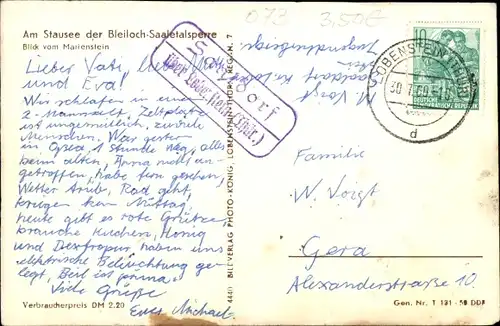 073 3,50€
Am Stausee der Bleiloch-Saaletalsperre
Blick vom Marienstein
Lieber Vati, liebe Mutti
und Eva!
Wir schlafen in einem
2-Mannzelt, Zeltplatz
ist ungemütlich, zuviele
Menschen. War gestern
in 1 Stunde weg, alles
beim alten, Anna nicht an-
getroffen, habe fern gesehen,
Wetter trüb, Rad geht,
kriegen kein Mittag,
heute gibt es rote Grütze
brauche Kuchen, Honig
und haben uns
elektrische Beleuchtung ge-
legt, Beil ist prima.
Viele Grüße
Euer Michael.
Verbraucherpreis DM 2.20
4440 BILD VERLAG PHOTO-KÖNIG, LOBENSTEIN-THÜR. REG.-N. 7
Saaldorf
über Lobenstein (Thür.)
M. Voigt
Saaldorf
LOBENSTEIN (THÜR)
d
10
DEUTSCHE
DEMOKRATISCHE REPUBLIK
Familie
W. Voigt
Gera
Alexanderstraße 10.
Gen. Nr. T 131 - 58 DDR